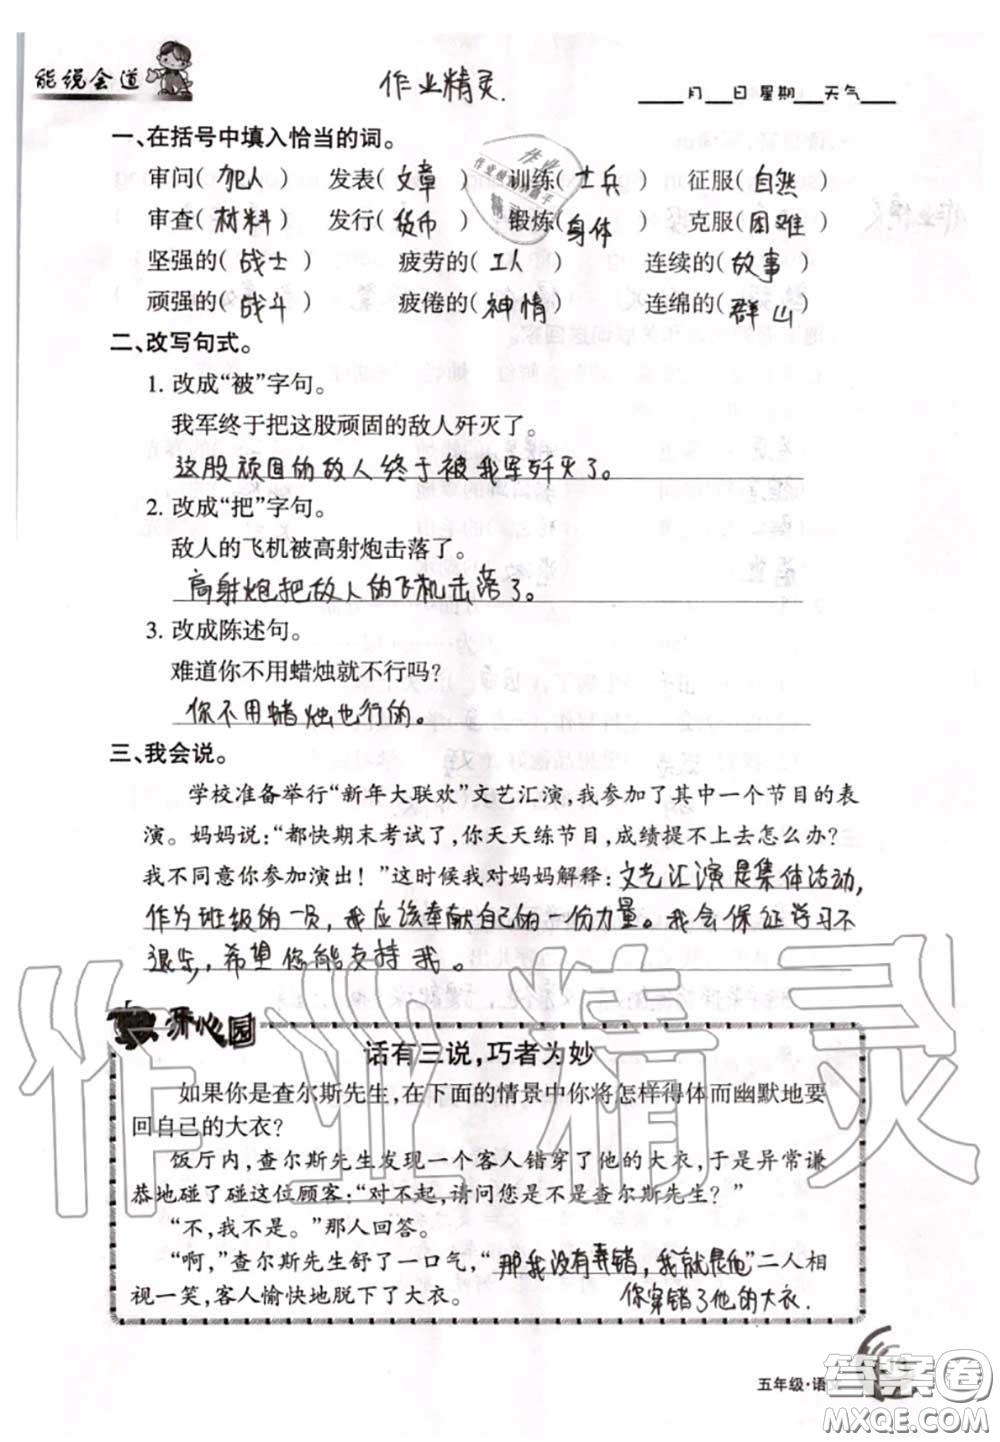 能说会道
作业精灵.
____月____日 星期____天气____
一、在括号中填入恰当的词。
审问( 犯人 ) 发表( 文章 ) 训练( 士兵 ) 征服( 自然 )
审查( 材料 ) 发行( 货币 ) 锻炼( 身体 ) 克服( 困难 )
坚强的( 战士 ) 疲劳的( 工人 ) 连续的( 故事 )
顽强的( 战斗 ) 疲倦的( 神情 ) 连绵的( 群山 )
二、改写句式。
1. 改成“被”字句。
我军终于把这股顽固的敌人歼灭了。
这股顽固的敌人终于被我军歼灭了。
2. 改成“把”字句。
敌人的飞机被高射炮击落了。
高射炮把敌人的飞机击落了。
3. 改成陈述句。
难道你不用蜡烛就不行吗?
你不用蜡烛也行的。
三、我会说。
学校准备举行“新年大联欢”文艺汇演,我参加了其中一个节目的表
演。妈妈说:“都快期末考试了,你天天练节目,成绩提不上去怎么办?
我不同意你参加演出!”这时候我对妈妈解释:文艺汇演是集体活动,
作为班级的一员,我应该奉献自己的一份力量。我会保证学习不
退步,希望你能支持我。
开心园
话有三说,巧者为妙
如果你是查尔斯先生,在下面的情景中你将怎样得体而幽默地要
回自己的大衣?
饭厅内,查尔斯先生发现一个客人错穿了他的大衣,于是异常谦
恭地碰了碰这位顾客:“对不起,请问您是不是查尔斯先生?”
“不,我不是。”那人回答。
“啊,”查尔斯先生舒了一口气,“那我没有弄错,我就是他”二人相
视一笑,客人愉快地脱下了大衣。 你穿错了他的大衣.
五年级·语文
作业精灵
答案圈
MXQE.COM